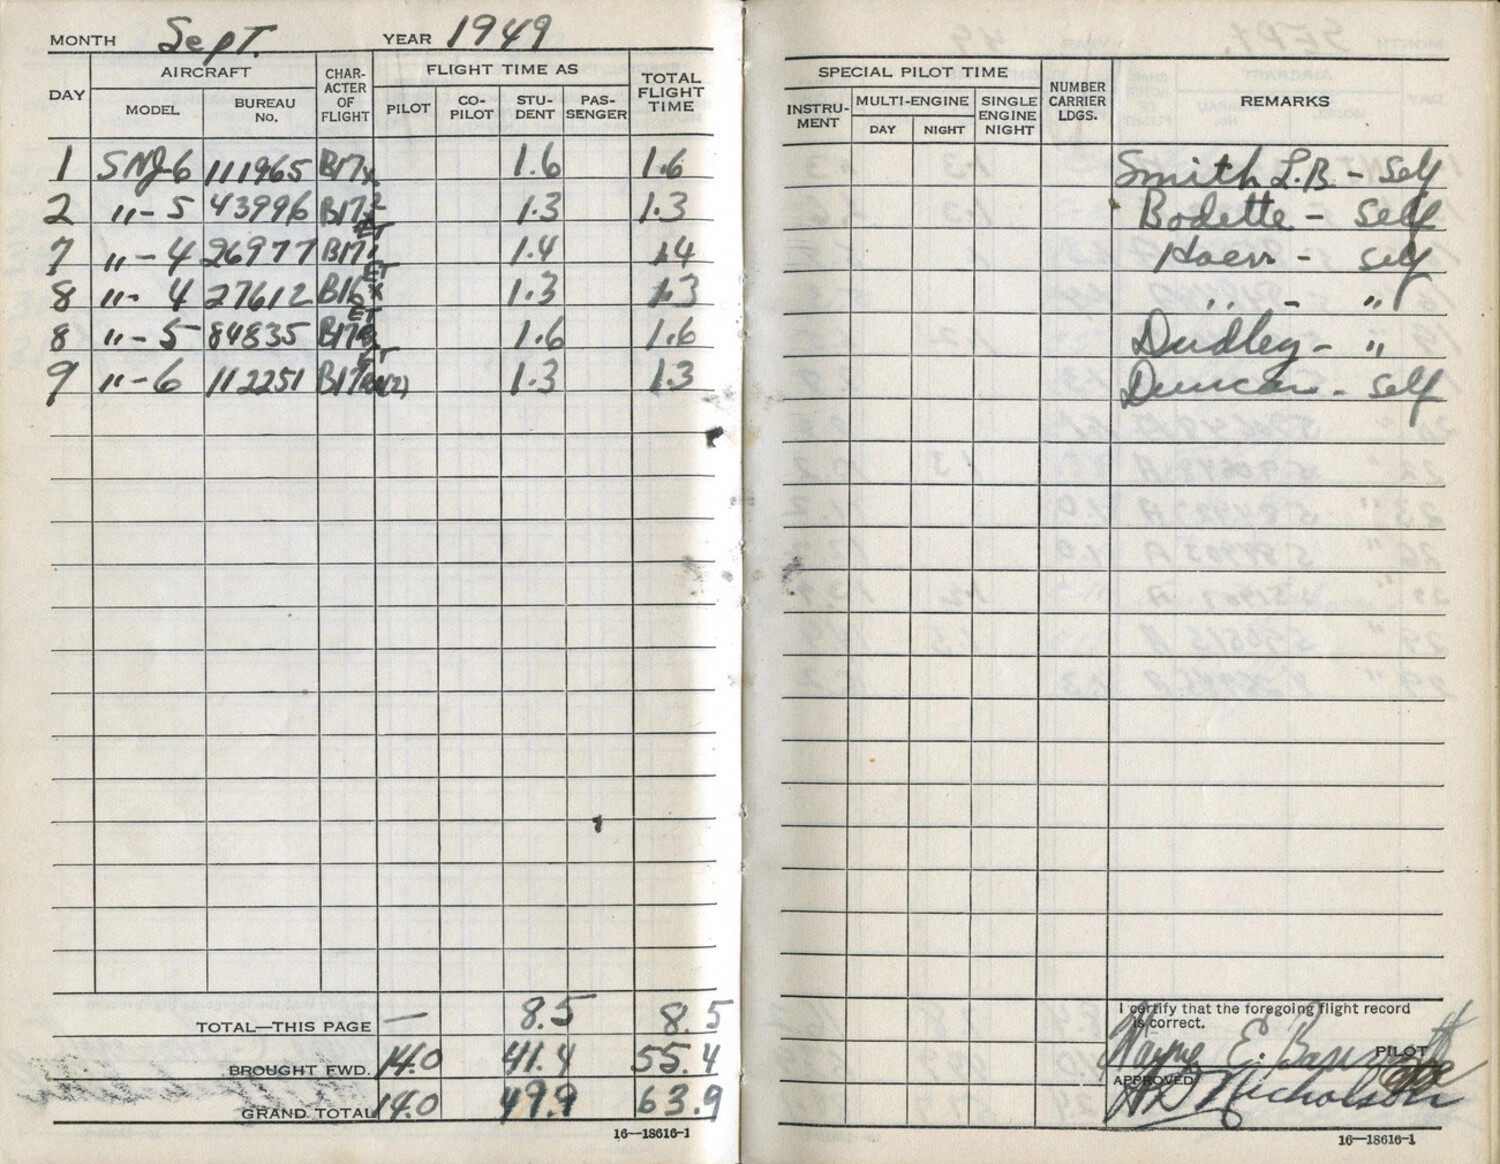 MONTH Sept. YEAR 1949
DAY AIRCRAFT CHARACTER OF FLIGHT FLIGHT TIME AS TOTAL FLIGHT TIME
MODEL BUREAU NO. PILOT CO-PILOT STUDENT PASSENGER
1 SNJ-6 111965 B17x 1.6 1.6
2 "-5 43996 B17 1.3 1.3
7 "-4 26977 B17 1.4 1.4
8 "-4 27612 1.3 1.3
8 "-5 84835 B17 1.6 1.6
9 "-6 112251 B17 1.3 1.3
TOTAL—THIS PAGE — 8.5 8.5
BROUGHT FWD. 14.0 41.4 55.4
GRAND TOTAL 14.0 49.9 63.9
16—18616-1
SPECIAL PILOT TIME NUMBER CARRIER LDGS. REMARKS
INSTRUMENT MULTI-ENGINE SINGLE ENGINE NIGHT
DAY NIGHT
Smith L.B. - Self
Bodette - Self
Hoerr - self
" - "
Dudley - "
Duncan - Self
I certify that the foregoing flight record
is correct.
Wayne E. PILOT
APPROVED
Nicholson
16—18616-1